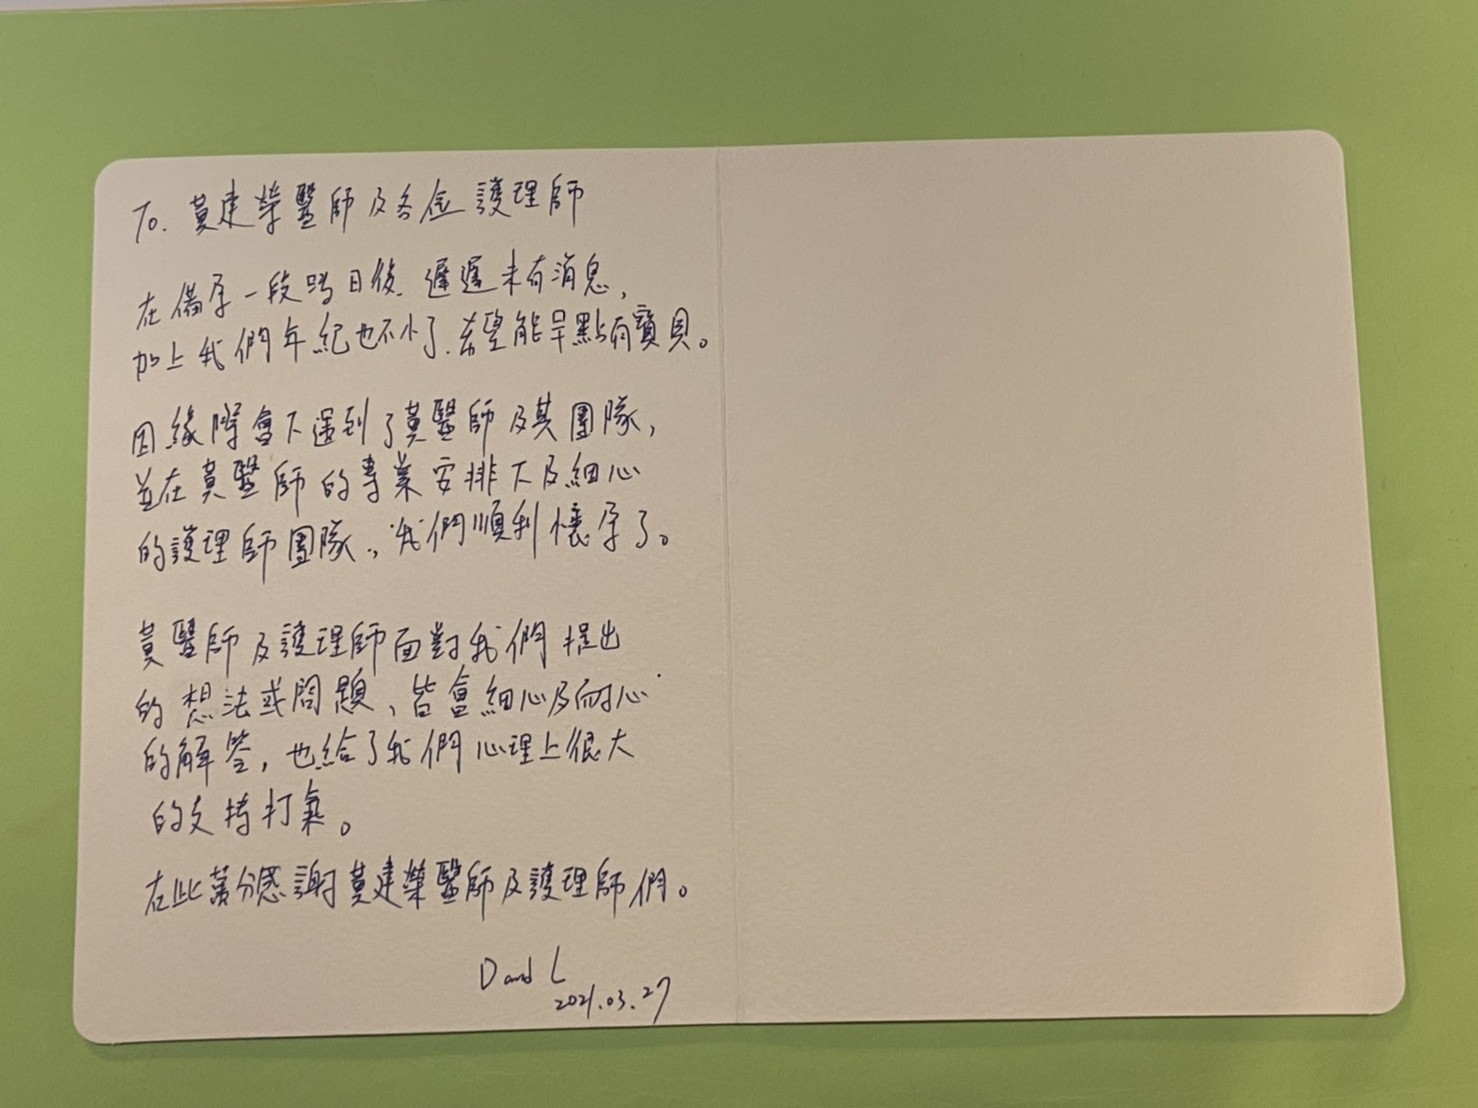 To. 黃建榮醫師及各位護理師
在備孕一段時日後、遲遲未有消息,
加上我們年紀也不小了、希望能早點有寶貝。
因緣際會下遇到了黃醫師及其團隊,
並在黃醫師的專業安排下及細心
的護理師團隊,我們順利懷孕了。
黃醫師及護理師面對我們提出
的想法或問題、皆會細心及耐心
的解答,也給了我們心理上很大
的支持打氣。
在此萬分感謝黃建榮醫師及護理師們。
D and L
2021.03.27